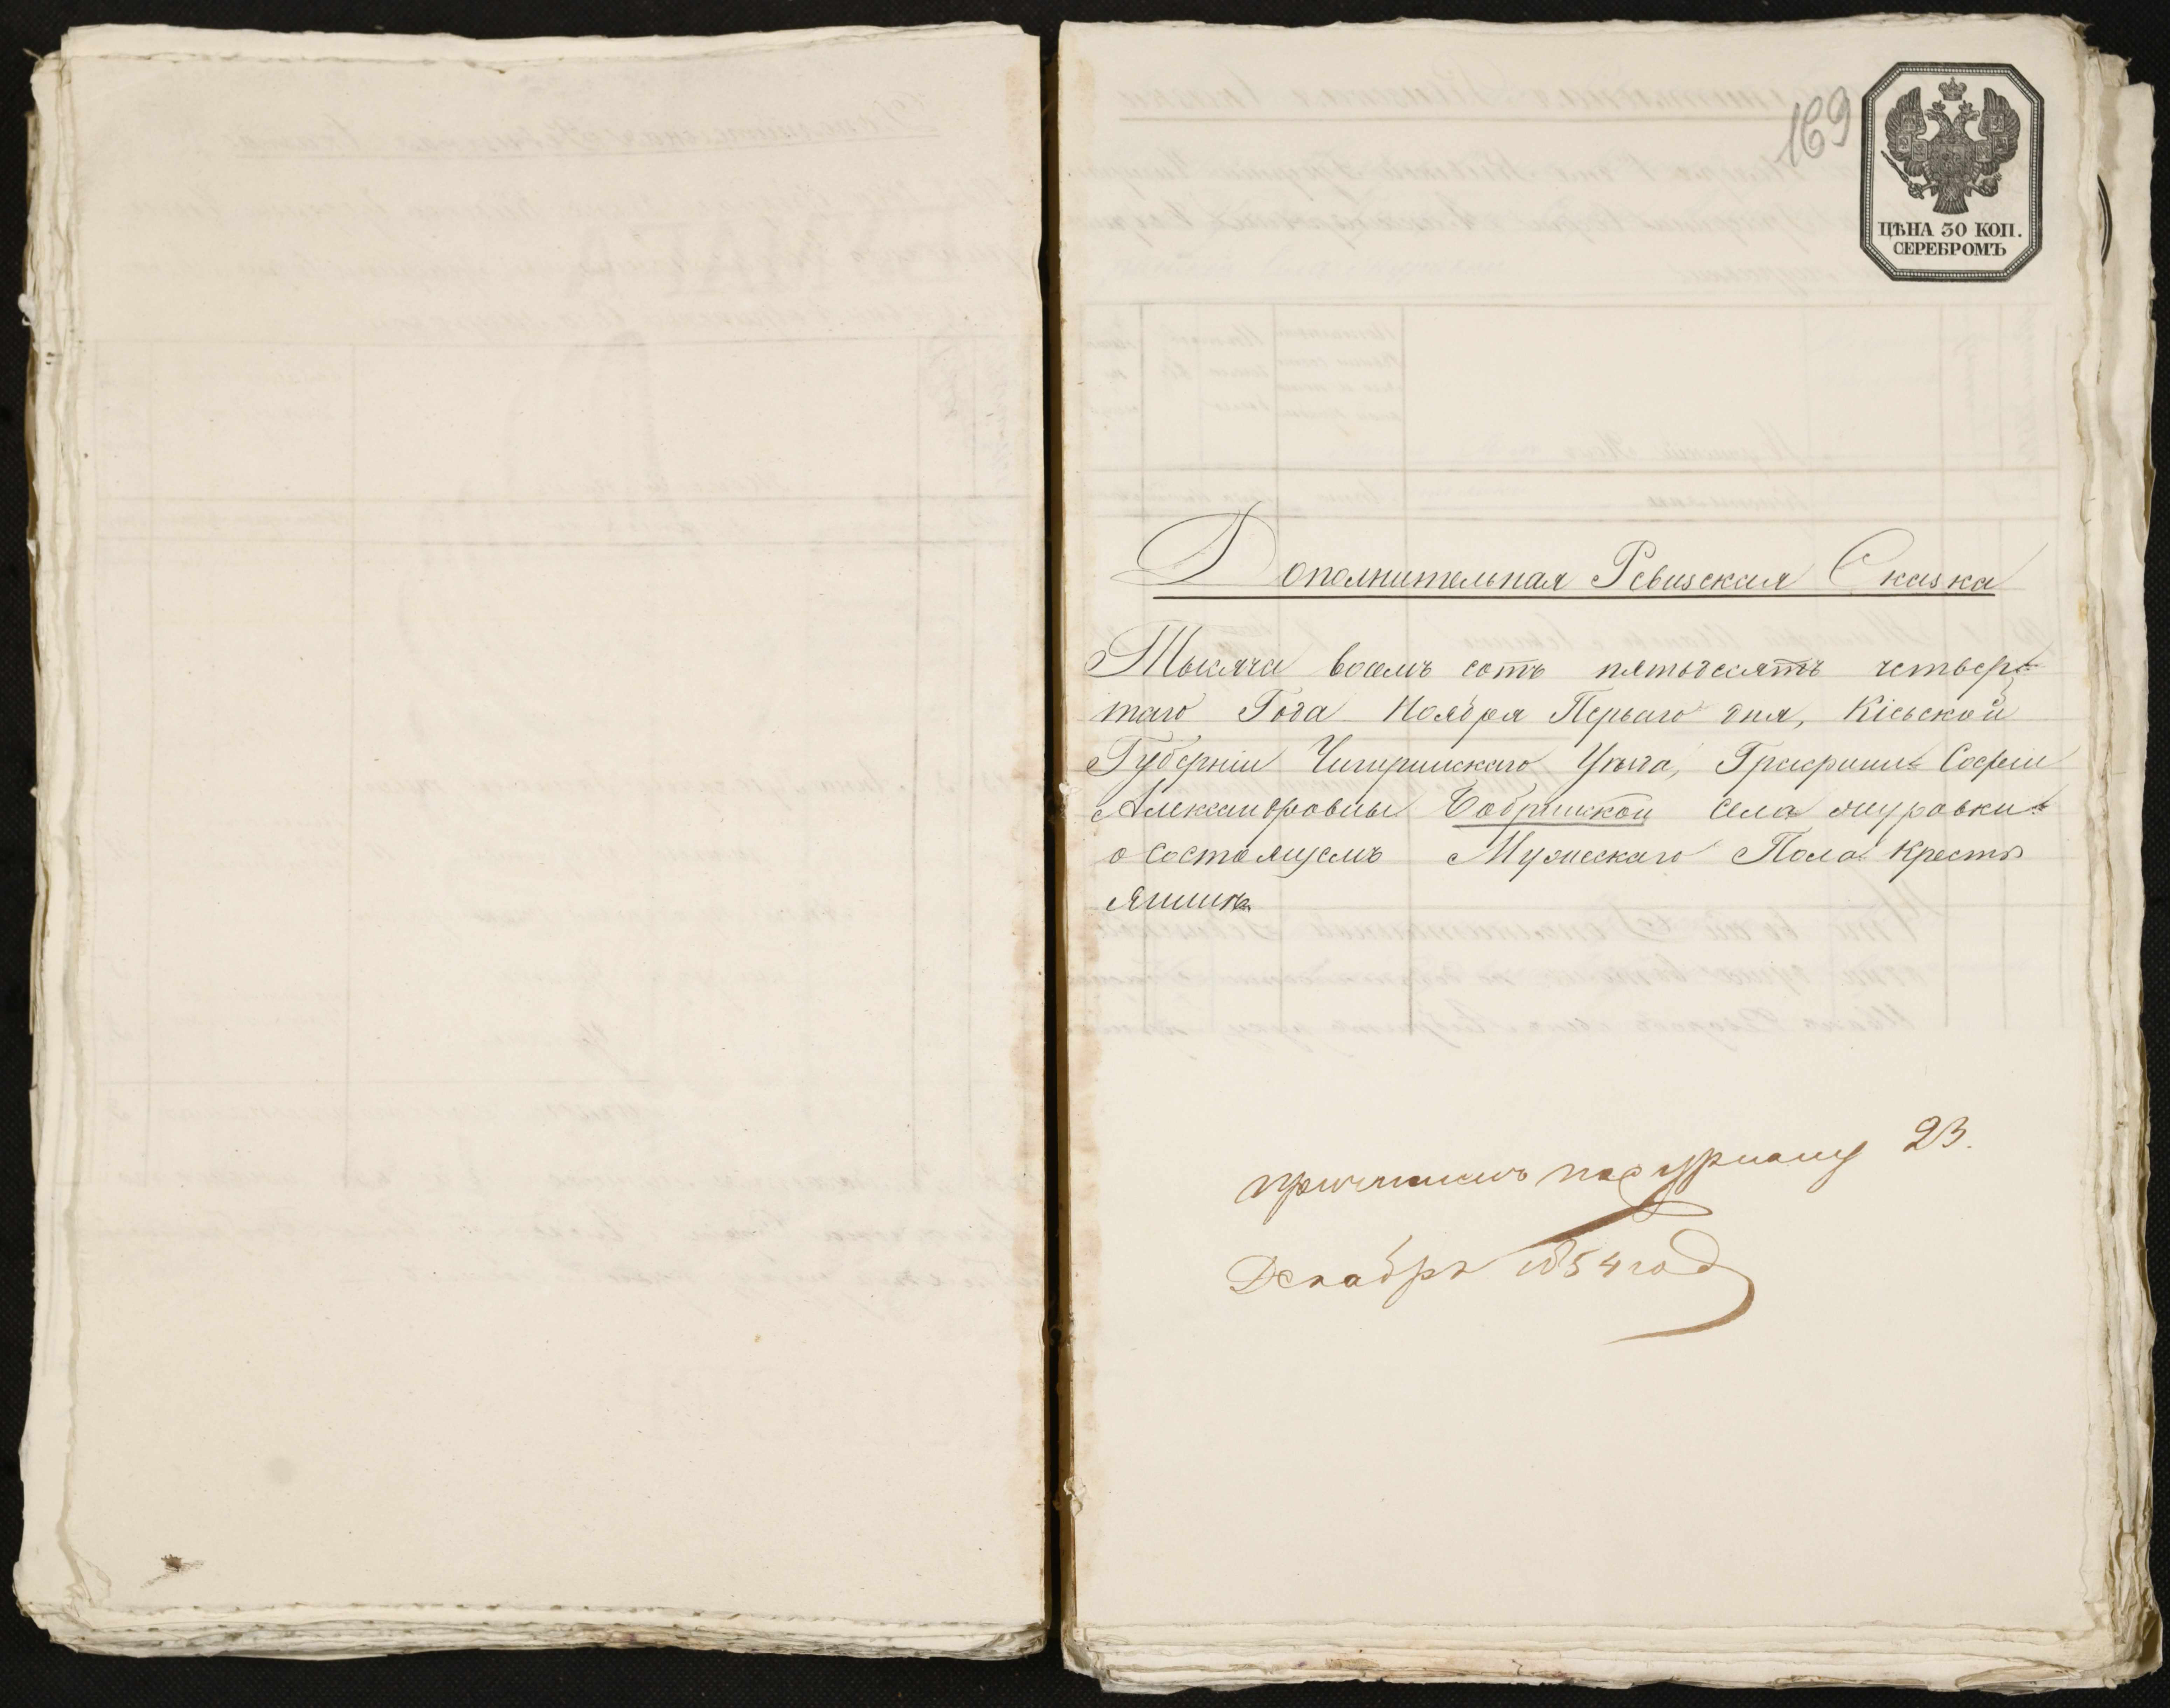 169
ЦѢНА 30 КОП.
СЕРЕБРОМЪ
Дополнительная Ревизская Сказка
Тысяча восемь сотъ пятьдесятъ четвер=
таго Года Ноября Перваго дня, Кіевской
Губерніи Чигиринскаго Уѣзда, Графини Софіи
Александровны Бобринской села Журавки
о состоящемъ Мужескаго Пола Кресть
янинѣ
журналу 23.
Декабря 1854 года